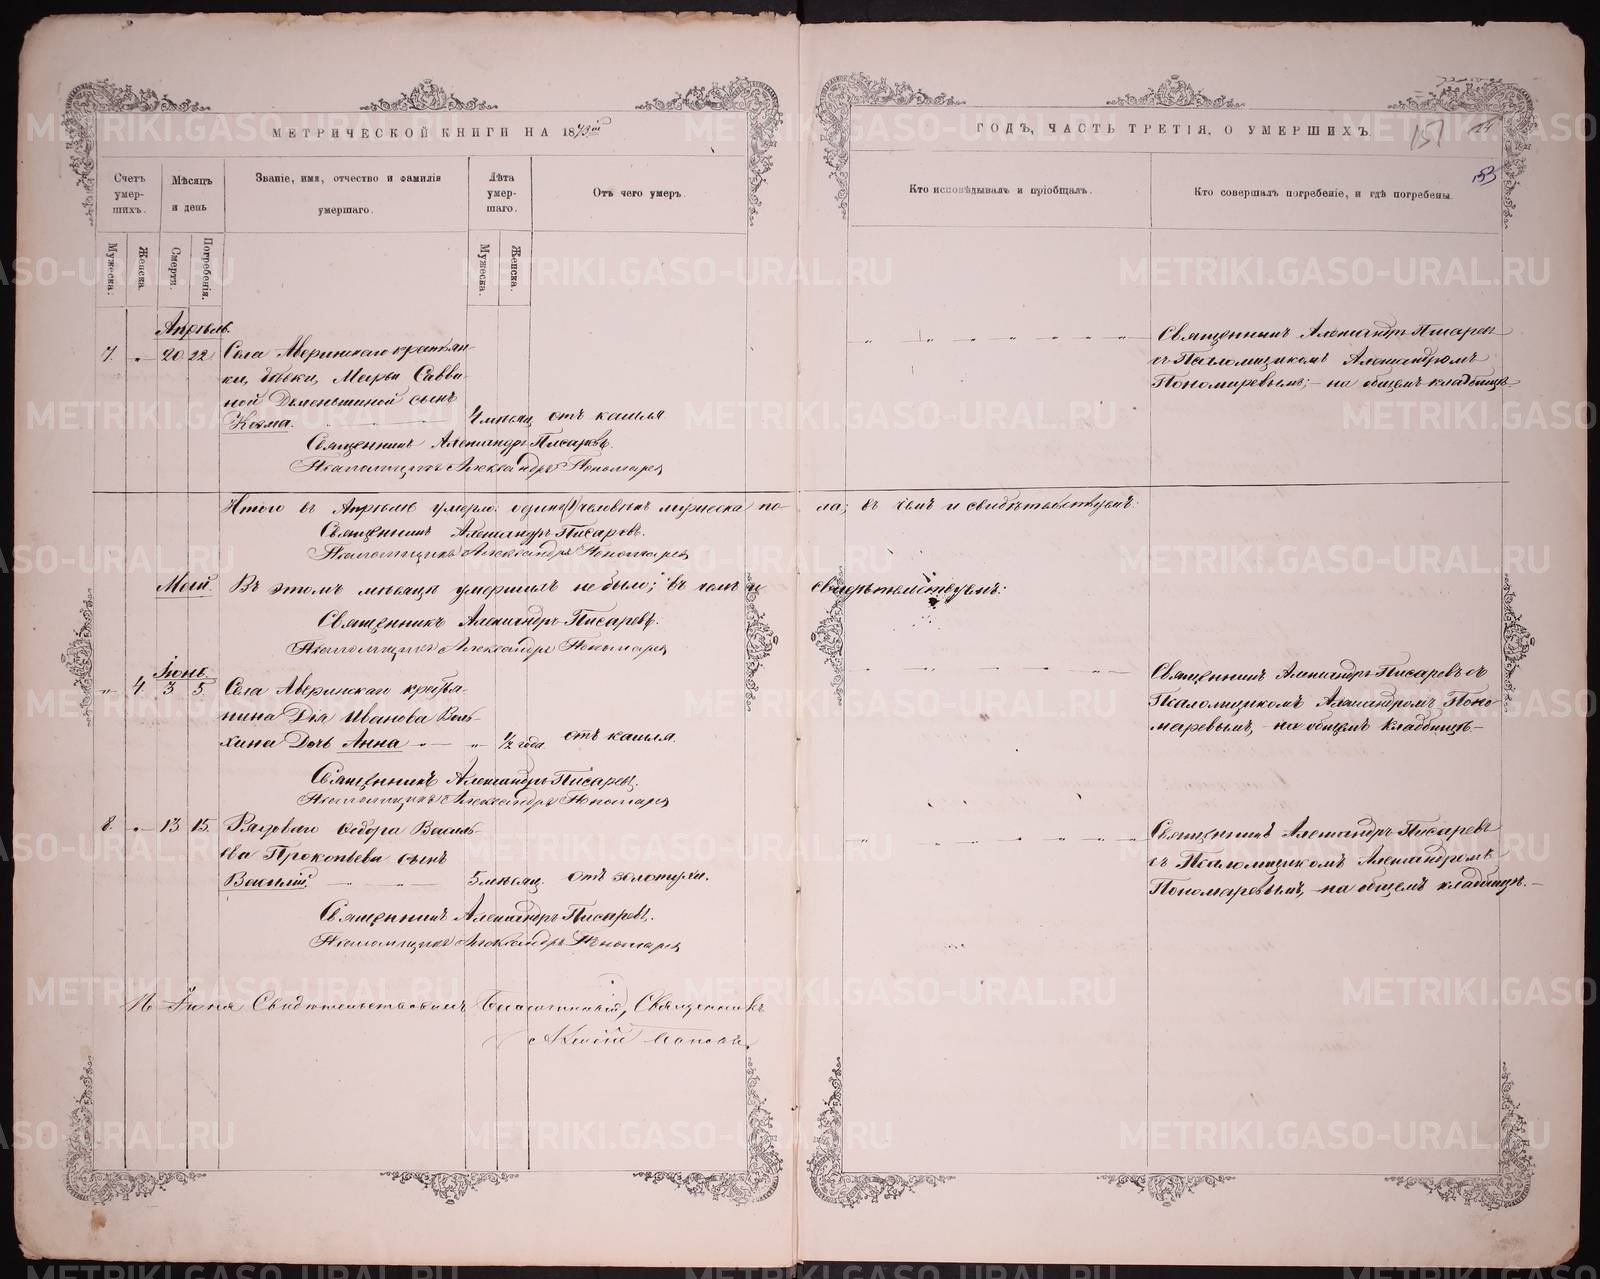 МЕТРИЧЕСКОЙ КНИГИ НА 1873й
ГОДЪ, ЧАСТЬ ТРЕТІЯ, О УМЕРШИХЪ.
151
Счетъ умер-шихъ.
Мѣсяцъ и день
Званіе, имя, отчество и фамилія умершаго.
Лѣта умер-шаго.
Отъ чего умеръ.
Кто исповѣдывалъ и пріобщалъ.
Кто совершалъ погребеніе, и гдѣ погребены.
Мужеска.
Женска.
Смерти.
Погребенія.
Мужеска.
Женска.
Апрѣль.
7. „ 20. 22. Села Аверинскаго крестьян-
ки, дѣвки, Марьи Савви-
ной Деменьшиной сынъ
Козма. 4 мѣсяц. отъ кашля
Священникъ Александръ Писаревъ
съ Псаломщикомъ Александромъ
Пономаревымъ; – на общемъ кладбищѣ
Священникъ Александръ Писаревъ.
Псаломщикъ Александръ Пономарев
Итого въ Апрѣлѣ умерло: одинъ (1) человѣкъ мужеска по-
ла; въ чемъ и свидѣтельствуемъ:
Священникъ Александръ Писаревъ.
Псаломщикъ Александръ Пономарев
Май. Въ этомъ мѣсяцѣ умершихъ не было; въ чемъ и
свидѣтельствуемъ:
Священникъ Александръ Писаревъ.
Псаломщикъ Александръ Пономарев
Іюнь.
„ 4. 3 5 Села Аверинскаго крестья-
нина Иванова
дочь Анна „ „ 1/2 года. отъ кашля.
Священникъ Александръ Писаревъ съ
Псаломщикомъ Александромъ Поно-
маревымъ, – на общемъ кладбищѣ. –
Священникъ Александръ Писаревъ.
Псаломщикъ Александръ Пономарев
8. „ 13. 15. Рядоваго Ѳедора Василь-
ева Прокопьева сынъ
Василій. 5 мѣсяц. отъ золотухи.
Священникъ Александръ Писаревъ
съ Псаломщикомъ Александромъ
Пономаревымъ, – на общемъ кладбищѣ. –
Священникъ Александръ Писаревъ.
Псаломщикъ Александръ Пономарев
Іюня Свидѣтельствовалъ Благочинный, Священникъ
Попов
METRIKI.GASO-URAL.RU